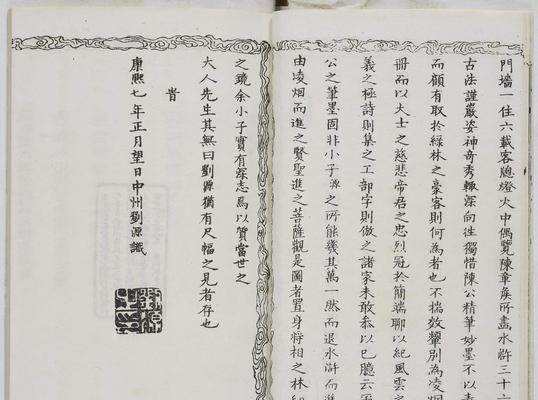 門墻一住六載客牕燈火中偶覽陳章侯所畫水滸三十
古法謹嚴姿神奇秀輙深向徃獨惜陳公精筆妙墨不以表
而顧有取於綠林之豪客則何為者也不揣效顰別為凌烟
冊而以大士之慈悲帝君之忠烈冠於簡端聊以紀風雲之
義之極詩則集之工部字則倣之諸家未敢忝以己臆云
公之筆墨固非小子源之所能幾其萬一然而退水滸而進
由凌烟而進之賢聖進之菩薩觀是圖者置身將相之林
之鏡余小子實有深志焉以質當世之
大人先生其無曰劉源猶有尺幅之見者存也
旹
康熙七年正月望日中州劉源識
劉源之印